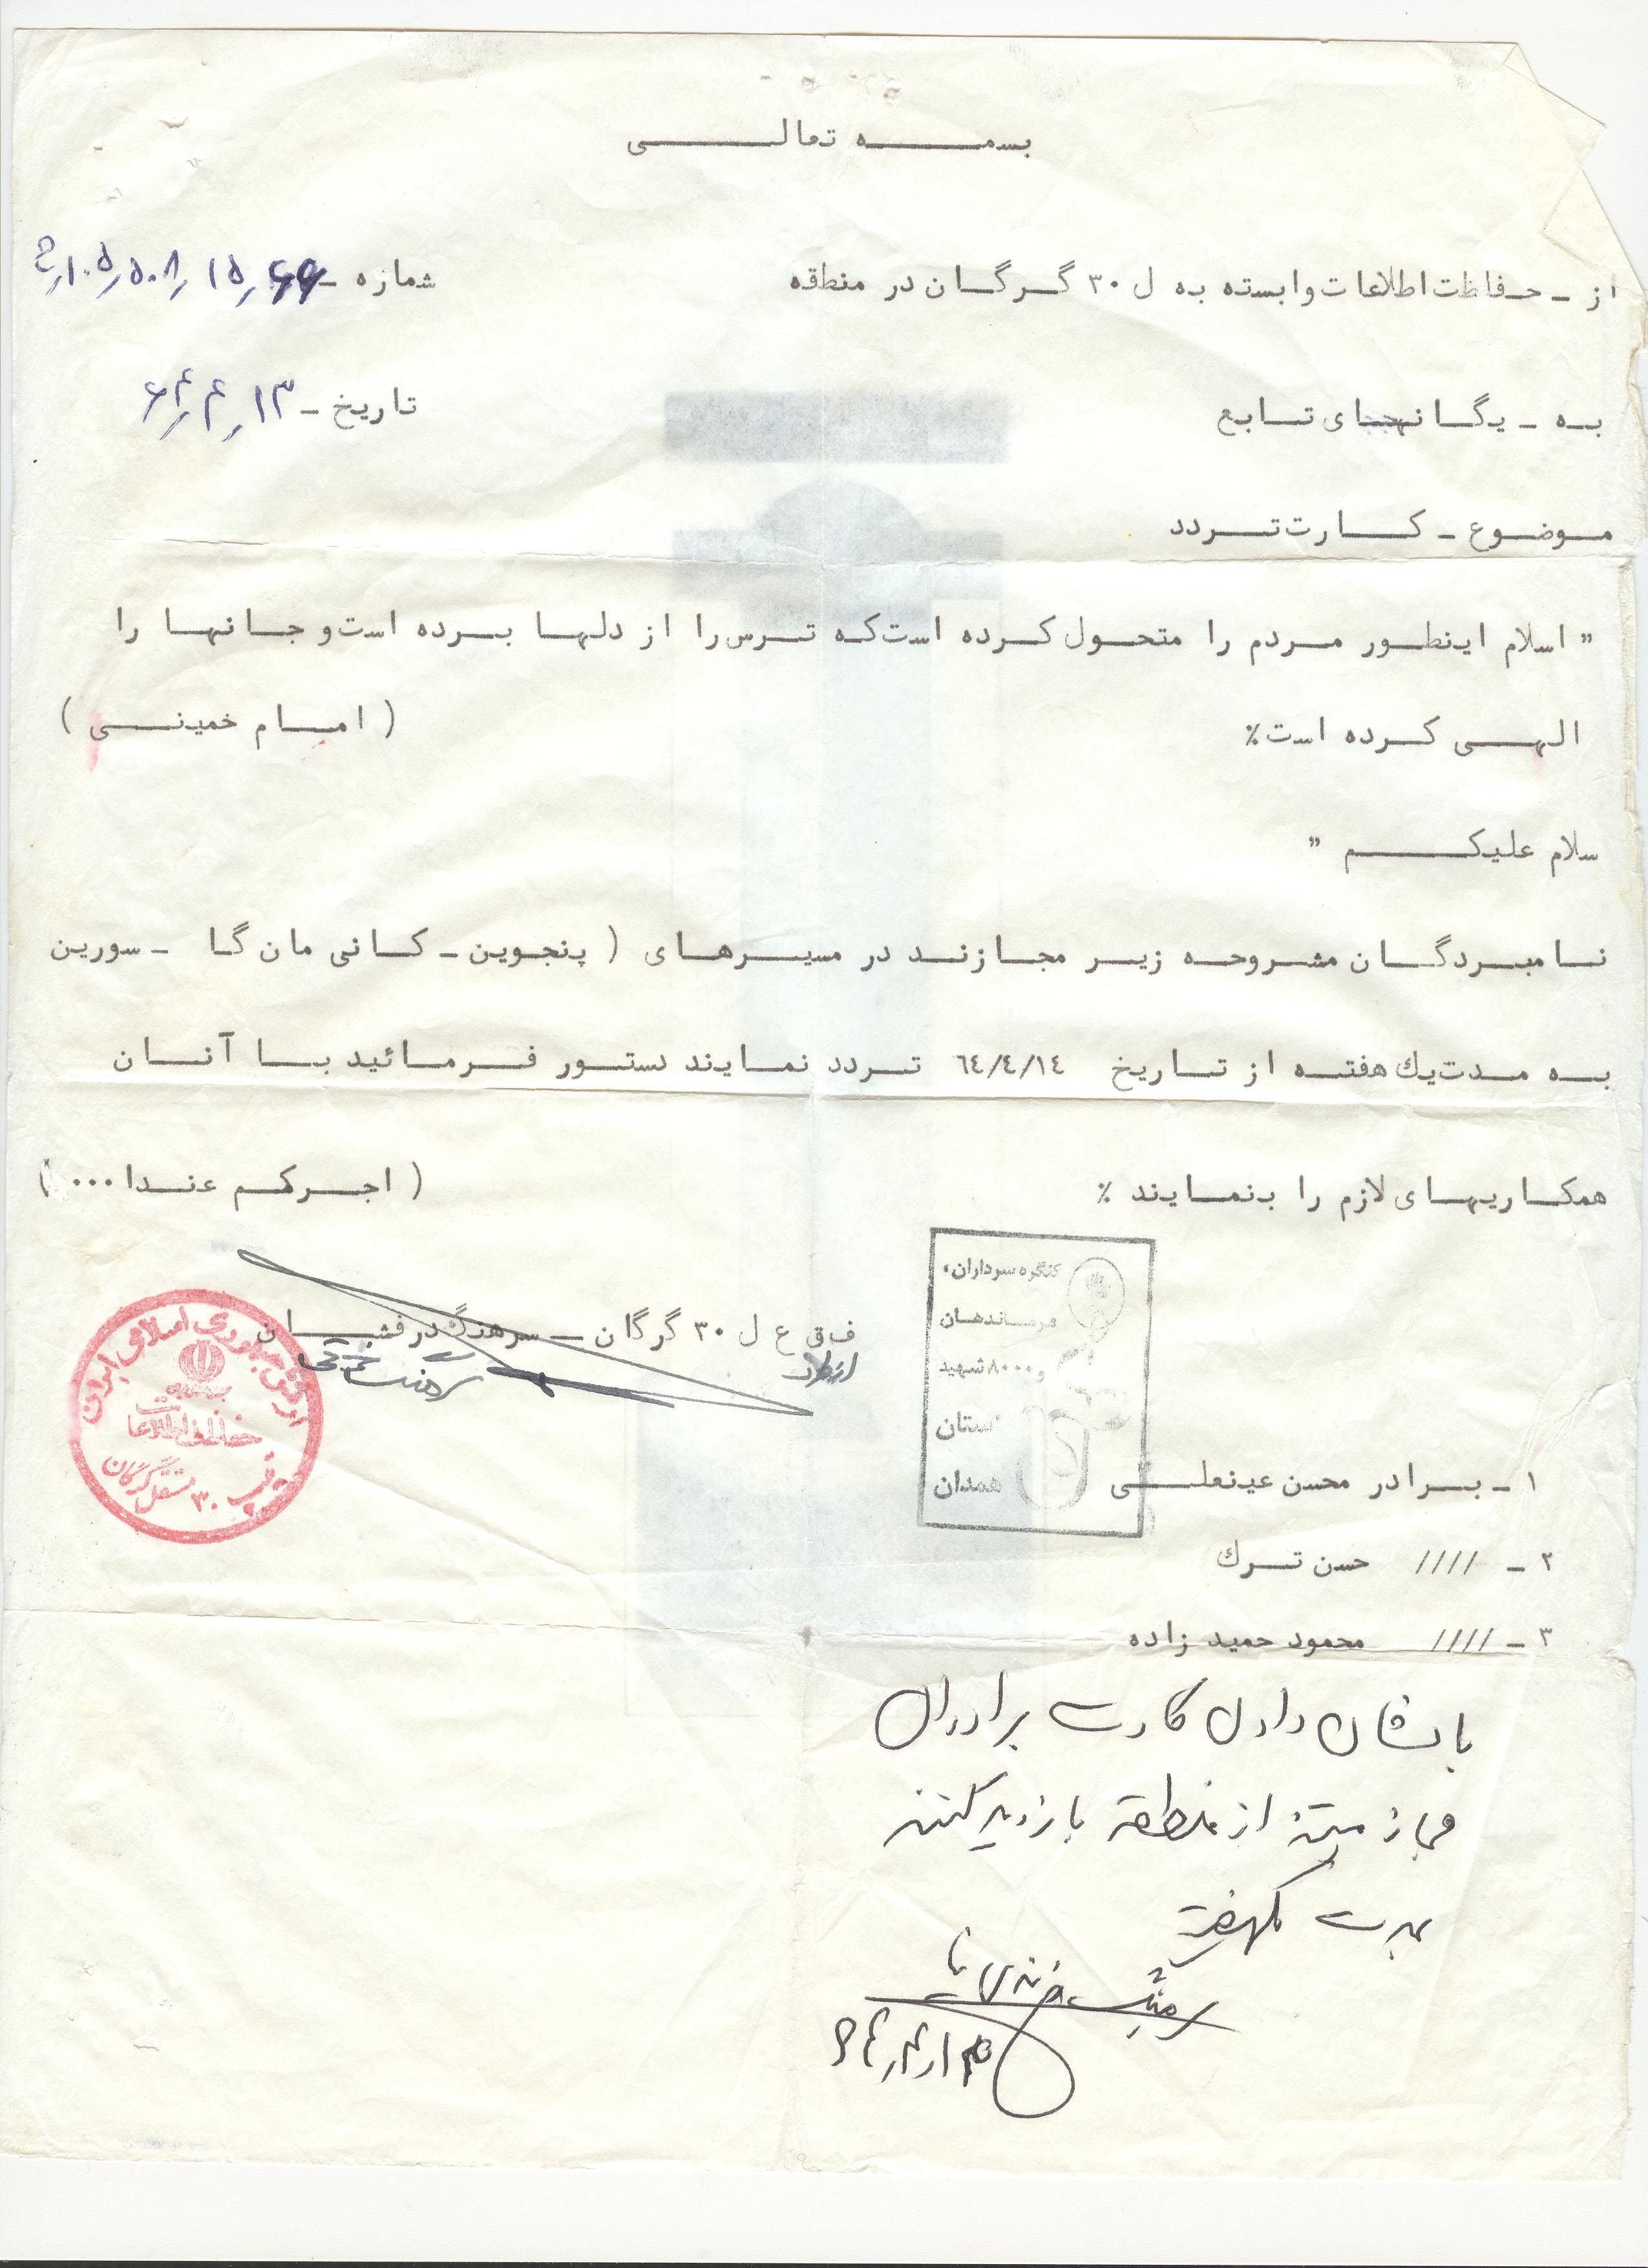 بسمه تعالی
از - حفاظت اطلاعات وابسته به ل ۳۰ گرگان در منطقه
شمازه -
به - یگانهای تابع
تاریخ - ۶۴٫۴٫۱۳
موضوع - کارت تردد
" اسلام اینطور مردم را متحول کرده است که ترس را از دلها برده است و جانها را
الهی کرده است٪ ( امام خمینی )
سلام علیکم "
نامبردگان مشروحه زیر مجازند در مسیرهای ( پنجوین - کانی مان گا - سورین
به مدت یك هفته از تاریخ ٦٤/٤/١٤ تردد نمایند دستور فرمائید با آنان
همکاریهای لازم را بنمایند ٪ ( اجرکم عندا ... )
کنگره سرداران،
فرماندهان
و ۸۰۰۰ شهید
استان
همدان
ف ق ع ل ۳۰ گرگان - سرهنگ درفشان
ارتش جمهوری اسلامی ایران
حفاظت اطلاعات
تیپ ۳۰ مستقل گرگان
۱ - برادر محسن عینعلی
۲ - //// حسن ترك
۳ - //// محمود حمید زاده
با نشان دادن کارت برادران
مجاز میتوانند از منطقه بازدید کنند
بمدت یکهفته
سرهنگ